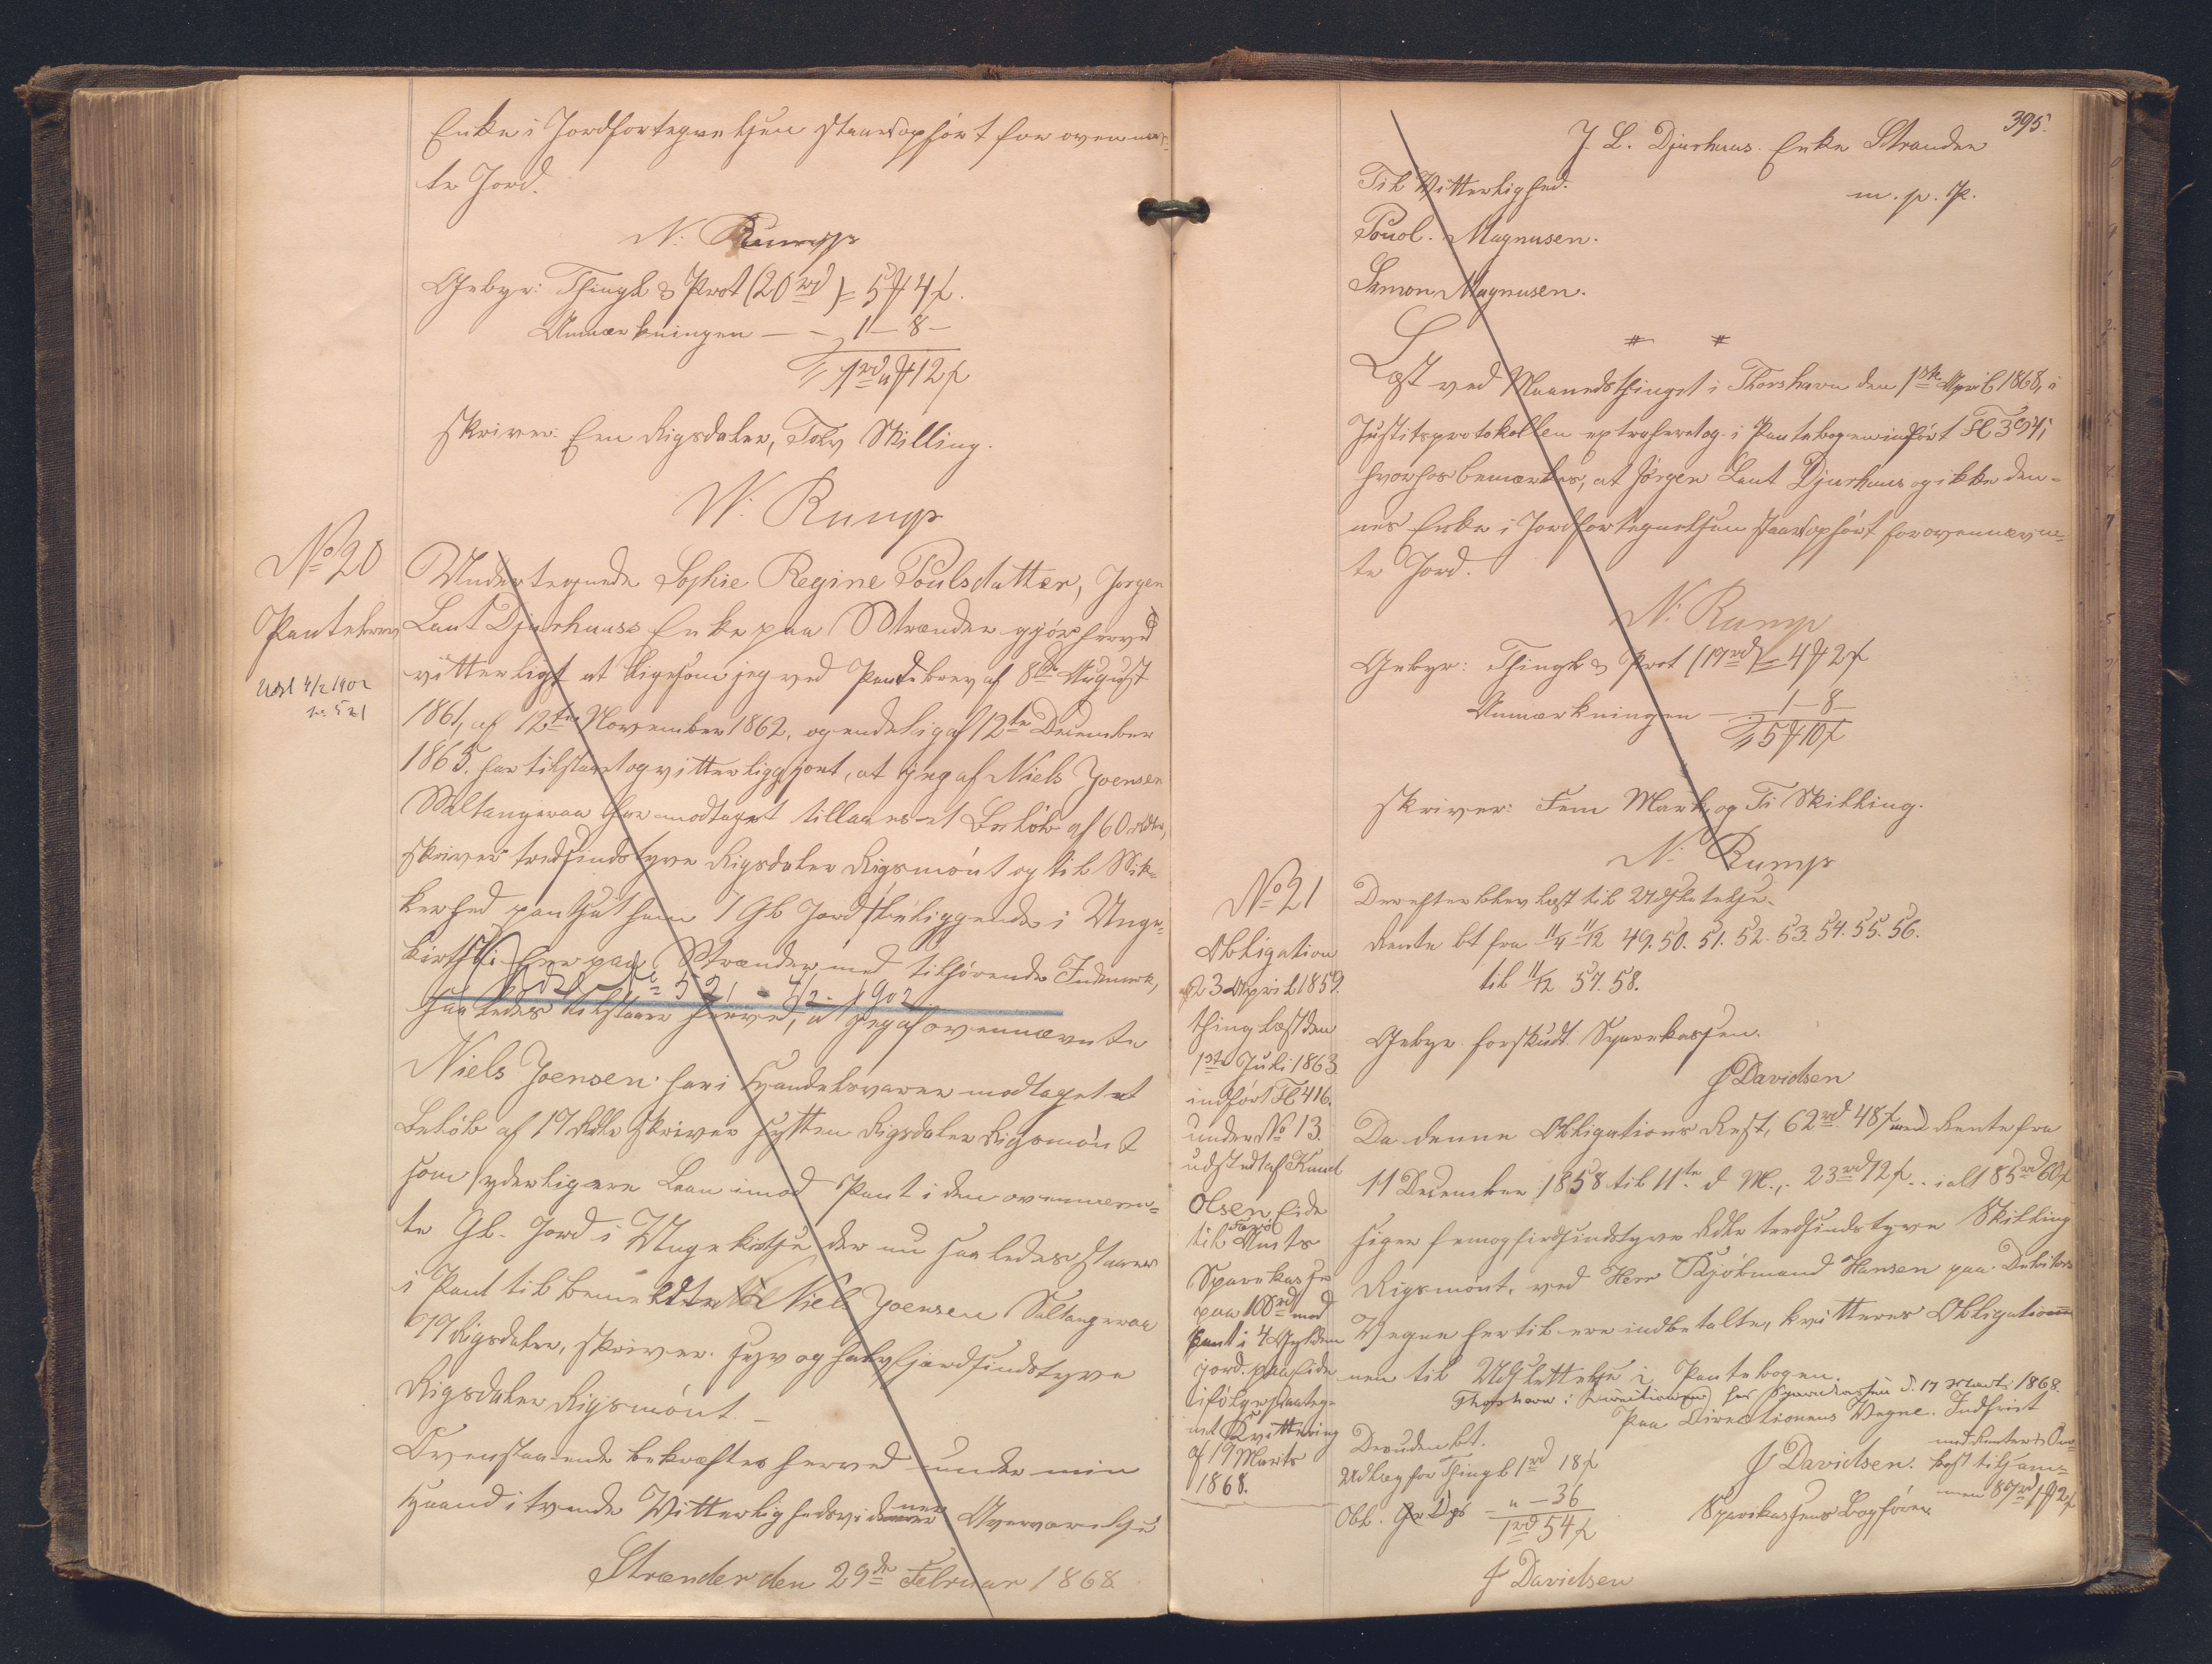 Enke i Jordfortegnelsen staaer opført for ovennævn-
te Jord.
N: Rump
Gebyr: Thingl & Prot (20 rd) = 5 # 4 ſ.
Anmærkningen — - 1 — 8 —
1 rd " # 12 ſ
skriver: Een Rigsdaler, Tolv Skilling.
N: Rump
No 20
Pantebrev
Udsl 4/2 1902
No. 521
Undertegnede Sophie Regine Poulsdatter, Jørgen
Laut Djurhuuss Enke paa Strænder gjør herved
vitterligt at ligesom jeg ved Pantebrev af 8de August
1861, af 12te November 1862, og endelig af 12te December
1865. har tilstaaet og vitterliggjort, at jeg af Niels Joensen
Saltangeraa har modtaget tillaans et Beløb af 60 rdlr,
skriver tredsindstyve Rigsdaler Rigsmønt og til Sik-
kerhed pantsat ham 1 Gl. Jord beliggende i Unge-
kirtsti her paa Strænder med tilhørende Indmark,
Udsl No 521 - 4/2 - 1902.
saaledes tilstaaer herved, at jeg af ovennævnte
Niels Joensen har i Handelsvarer modtaget et
Beløb af 17 Rdlr skriver sytten Rigsdaler Rigsmønt
som yderligere Laan imod Pant i den ovennævn-
te Gl. Jord i Ungekirtsti, der nu saaledes staaer
i Pant til bemeldte Niels Joensen Saltangeraa
77 Rigsdaler, skriver: syv og halvfjerdsindstyve
Rigsdaler Rigsmønt. —
Ovenstaaende bekræftes herved under min
Haand i tvende Vitterlighedsvidners Overværelse
Strænder den 29de Februar 1868.
395.
J. L. Djurhuus. Enke Strander
m. p. P.
Til Vitterlighed.
Pouol. Magnusen.
Simon Magnusen.
# #
Læst ved Maanedsthinget i Thorshavn den 1ste April 1868, i
Justitsprotokollen extraheret og i Pantebogen indført Fl 394;
hvorhos bemærkes, at Jørgen Laut Djurhuus og ikke den-
nes Enke i Jordfortegnelsen staaer opført for ovennævn-
te Jord.
N: Rump
Gebyr: Thingl & Prot (17 rd) = 4 # 2 ſ
Anmærkningen — 1 — 8 —
5 # 10 ſ
skriver: Fem Mark og Ti Skilling.
N: Rump
No 21
Obligation
af 23 April 1859.
thinglæst den
1ste Juli 1863.
indført Fl 416.
under No 13.
udstedt af Knud
Olsen Eide
til Færø Amts
Sparekasse
paa 100 rd mod
Pant i 4 Gylden
Jord paa Eide
ifølge paateg-
net Kvittering
af 19 Marts
1868.
Derefter blev læst til Udslettelse.
Rente bt fra 11/4 - 11/12 49. 50. 51. 52. 53. 54. 55. 56.
til 11/12 57. 58.
Gebyr forskudt Sparekassen.
J Davidsen
Da denne Obligations Rest, 62 rd 48 ſ med Rente fra
11 December 1858 til 11te d. M., 23 rd 12 ſ.. ialt 85 rd 60 ſ
siger femogfirsindstyve Rdlr tredsindstyve Skilling
Rigsmønt, ved Herr Kjøbmand Hansen paa Debitors
Vegne hertil ere indbetalte, kvitteres Obligatio-
nen til Udslettelse i Pantebogen.
Thorshavn i Directionen for Sparekassen d. 17 Marts 1868.
Paa Directionens Vegne. Indfriet
med Renter & Om-
kost tilsam-
men 87 rd 1 # 2 ſ
J Davidsen.
Sparekassens Bogfører
Desuden bt.
Udlæg for Thingl 1 rd 18 ſ
Obl. " — 36
1 rd 54 ſ
J Davidsen